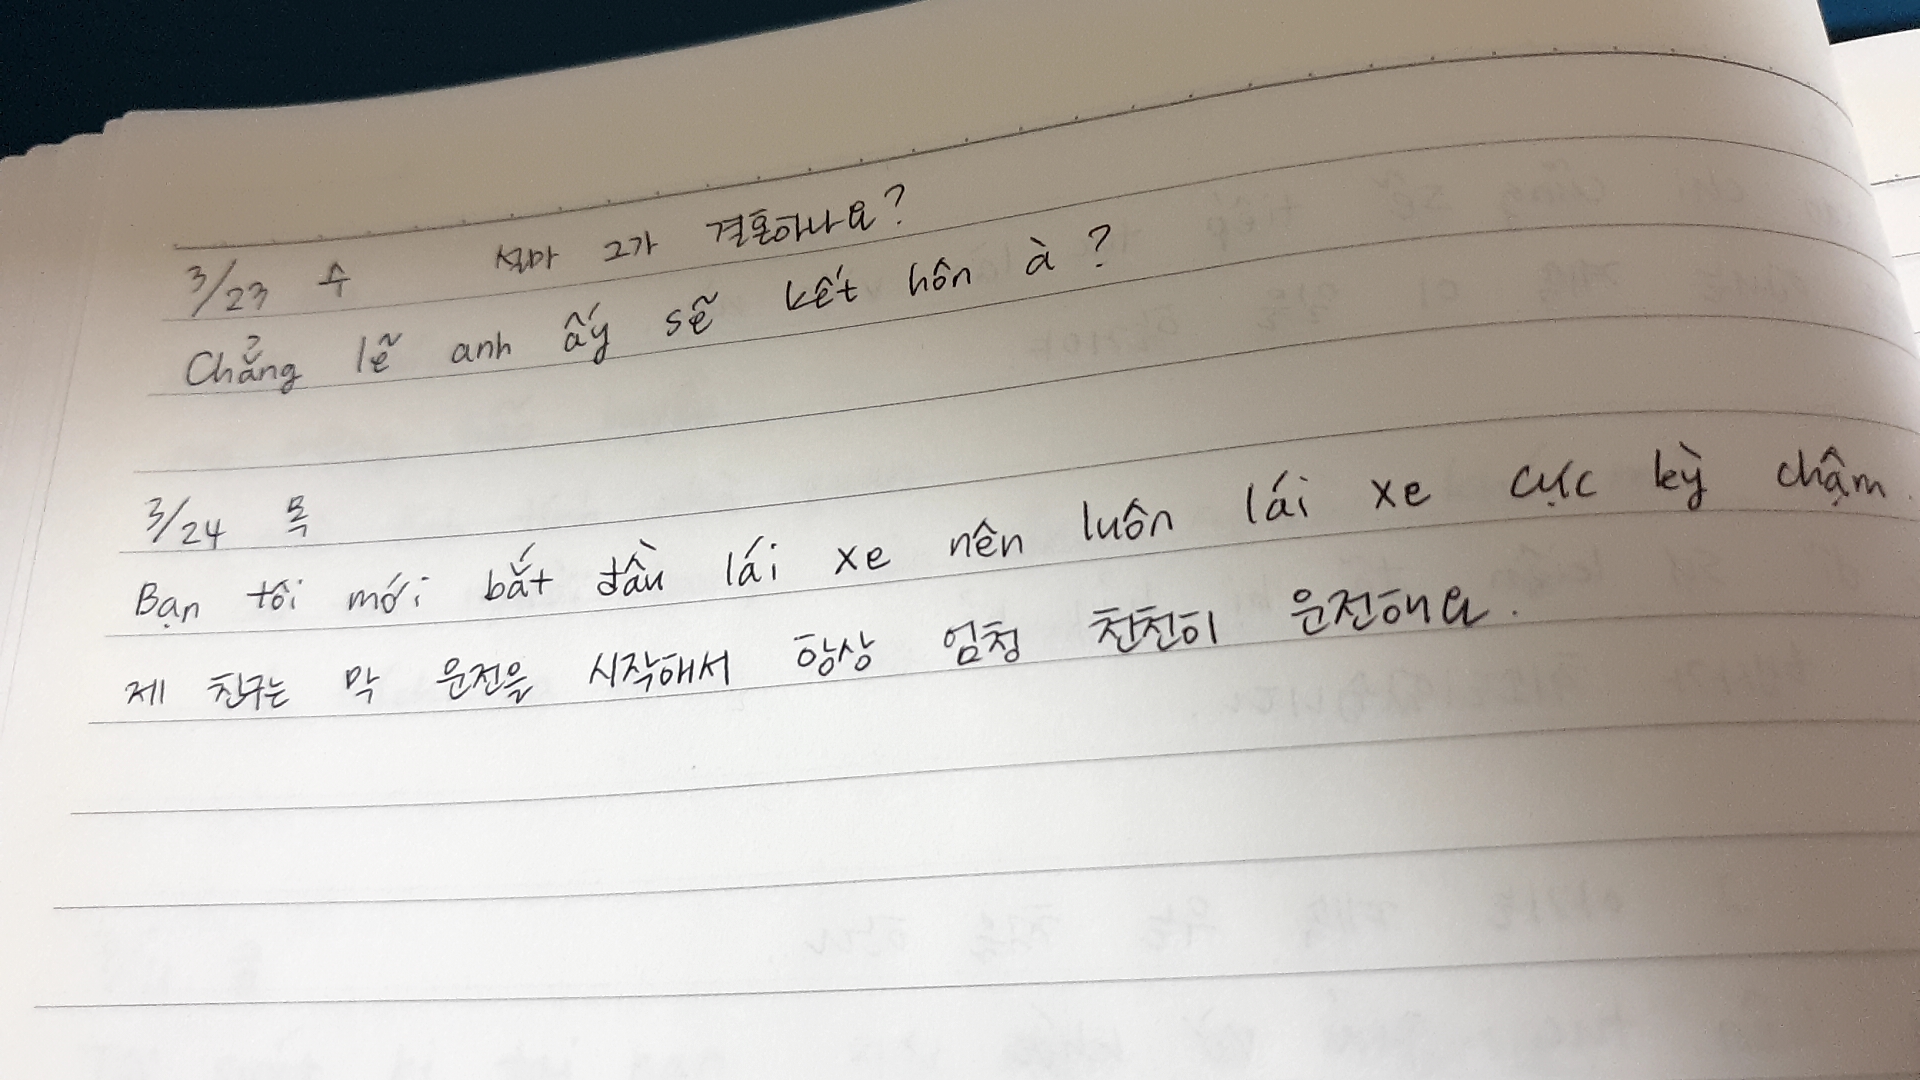 3/23 수 설마 그가 결혼하나요?
Chẳng lẽ anh ấy sẽ kết hôn à?
3/24 목
Bạn tôi mới bắt đầu lái xe nên luôn lái xe cực kỳ chậm.
제 친구는 막 운전을 시작해서 항상 엄청 천천히 운전해요.